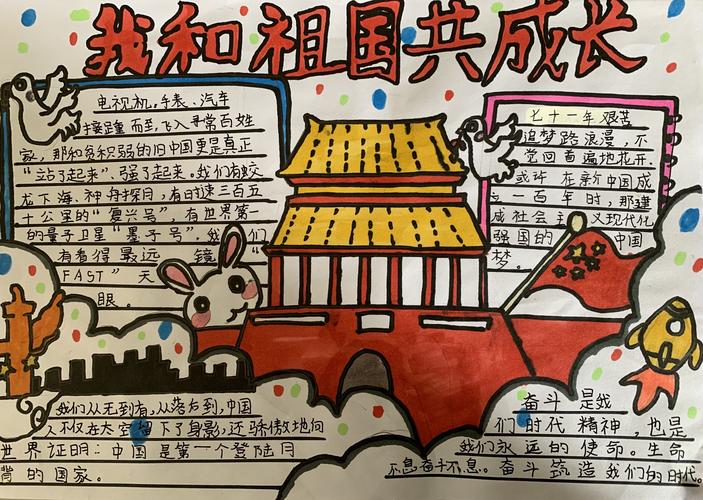 我和祖国共成长
电视机,手表、汽车
接踵而至,飞入寻常百姓
家,那和贫积弱的旧中国更是真正
“站了起来”、强了起来。我们有蛟
龙下海、神舟探月,有时速三百五
十公里的“复兴号”,有世界第一
的量子卫星“墨子号”,我们
有看得最远 镜“
FAST”天
眼。
七十一年 艰苦
追梦路浪漫,不
觉回首遍地花开.
或许在新中国成
一百年时,那建
成社会主义现代化
强国的 中国
梦。
我们从无到有,从落后到,中国
人不仅在太空留下了身影,还骄傲地向
世界证明:中国是第一个登陆月
背的国家。
奋斗是我
们时代精神,也是
我们永远的使命。生命
不息奋斗不息。奋斗筑造我们的时代。